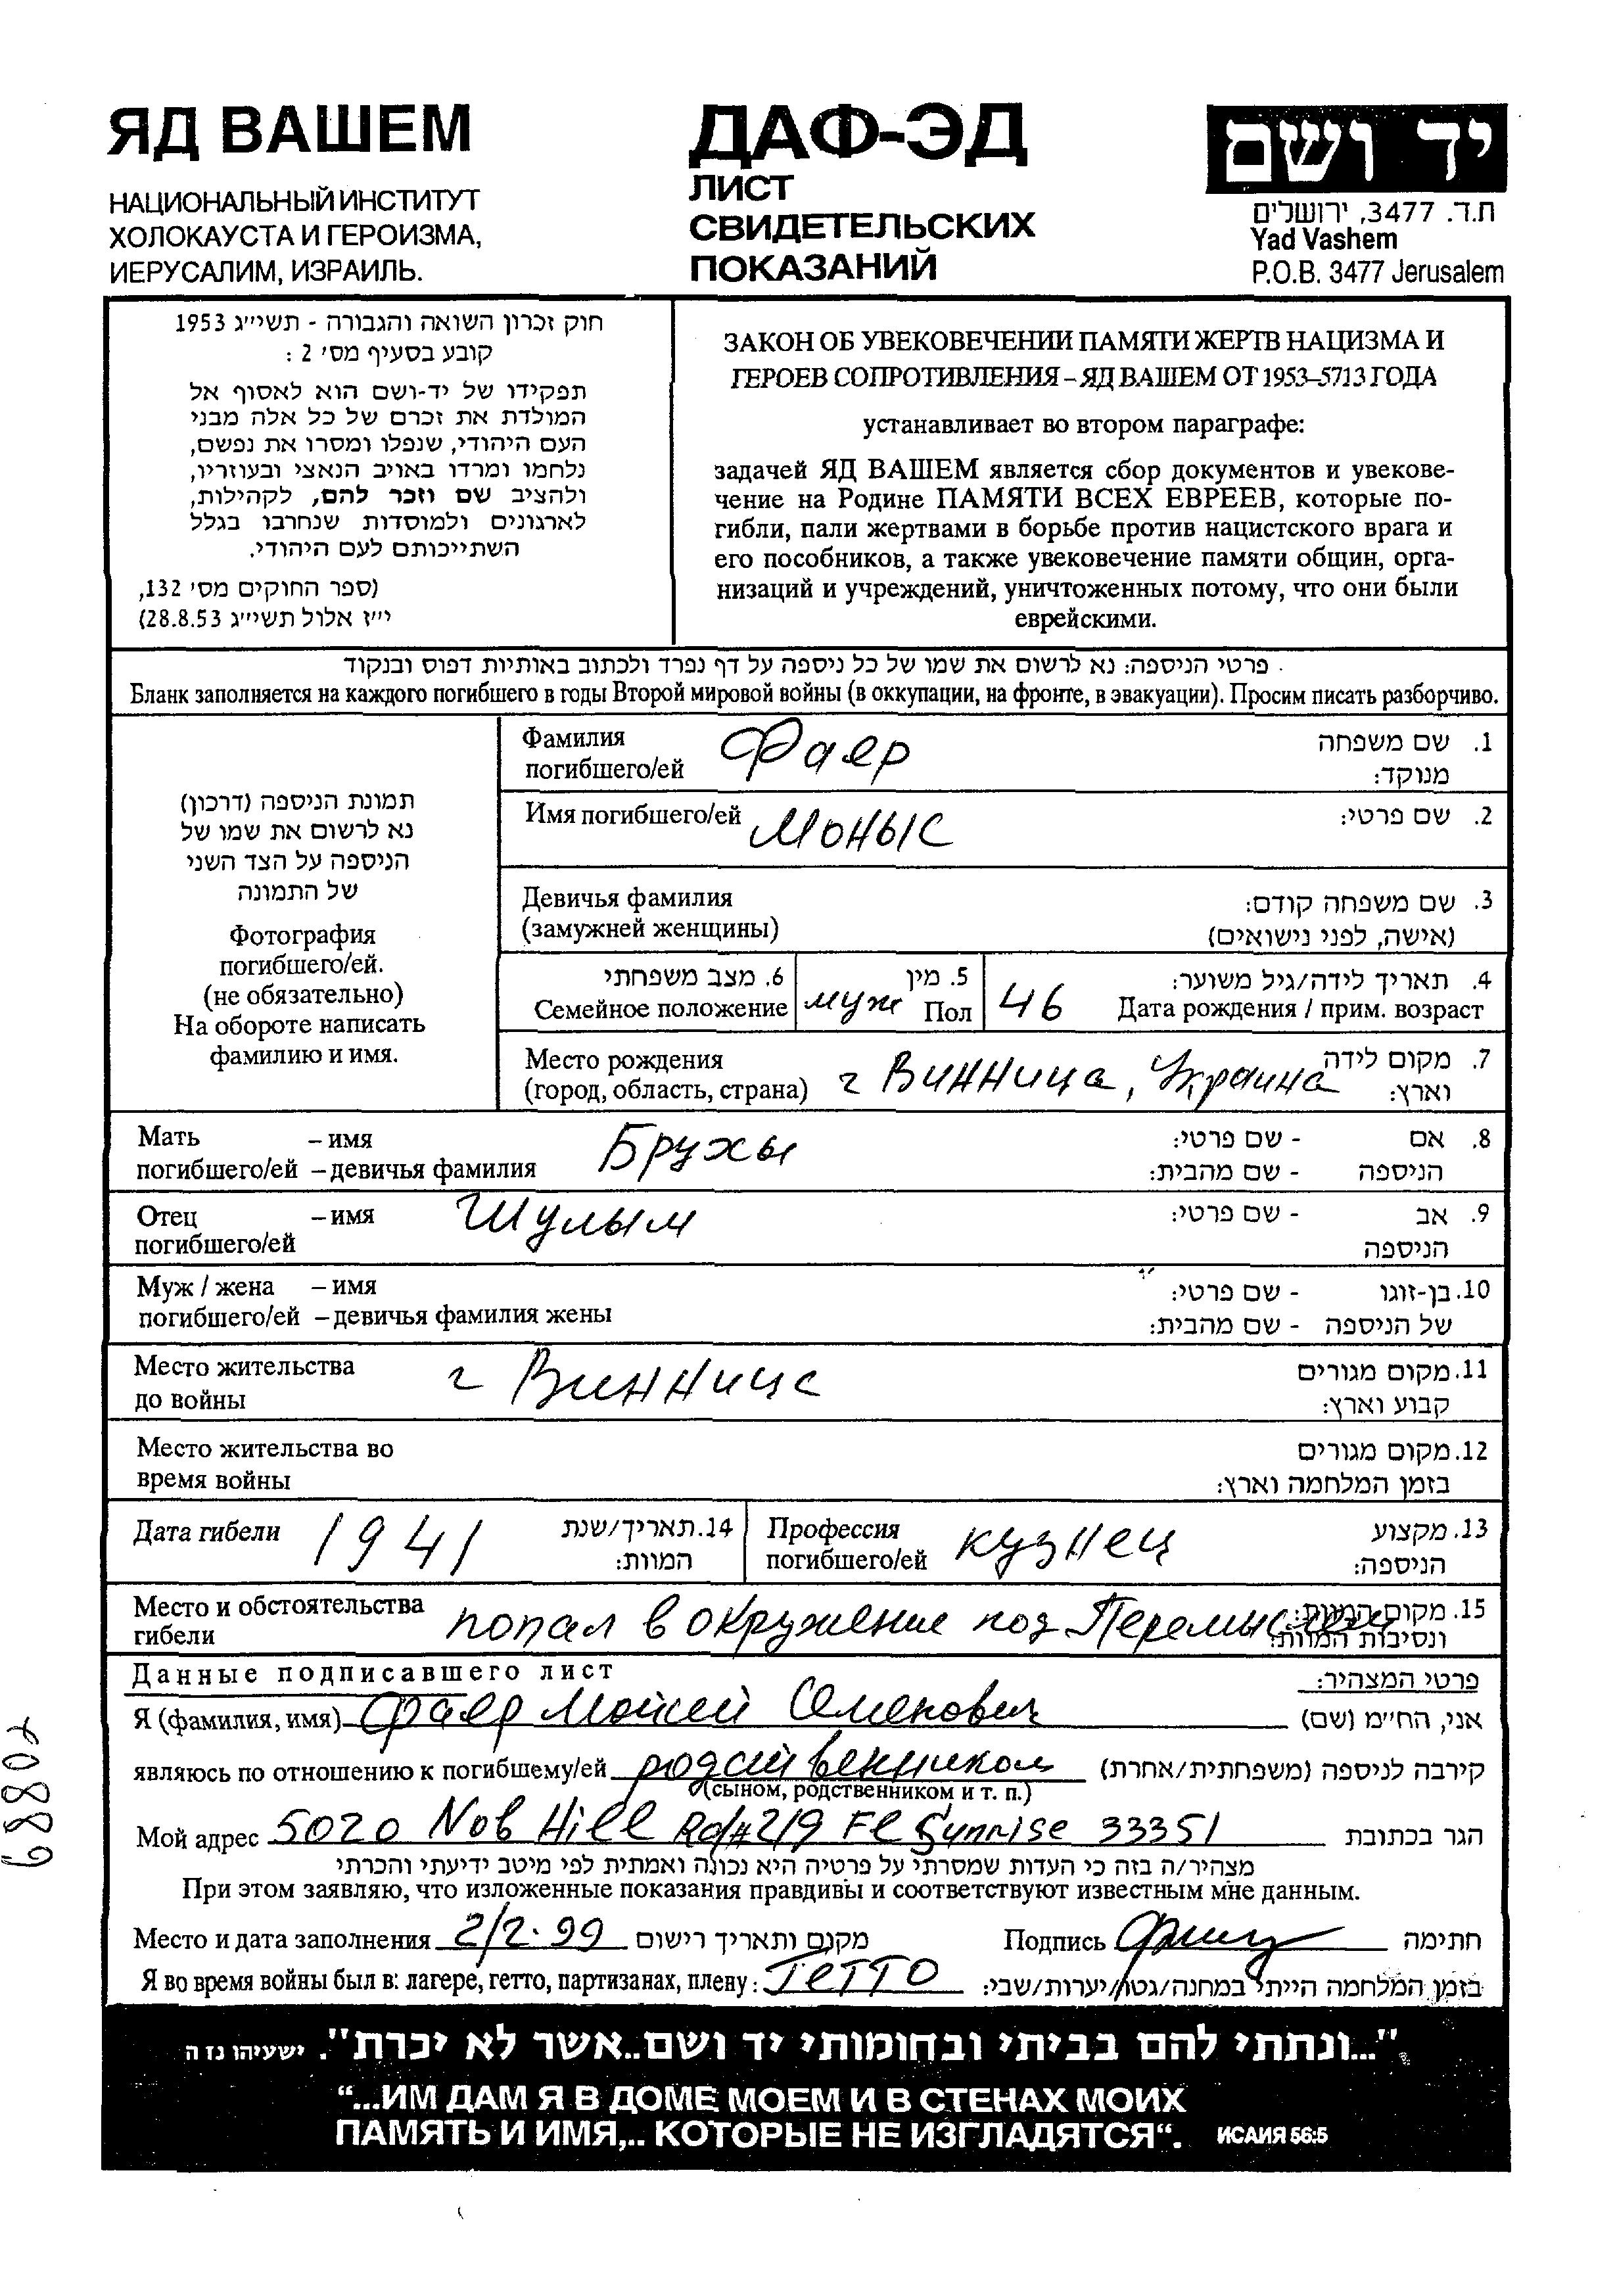 ЯД ВАШЕМ
НАЦИОНАЛЬНЫЙ ИНСТИТУТ
ХОЛОКАУСТА И ГЕРОИЗМА,
ИЕРУСАЛИМ, ИЗРАИЛЬ.
ДАФ-ЭД
ЛИСТ
СВИДЕТЕЛЬСКИХ
ПОКАЗАНИЙ
יד ושם
ת.ד. 3477, ירושלים
Yad Vashem
P.O.B. 3477 Jerusalem
חוק זכרון השואה והגבורה - תשי״ג 1953
קובע בסעיף מס׳ 2 :
תפקידו של יד-ושם הוא לאסוף אל
המולדת את זכרם של כל אלה מבני
העם היהודי, שנפלו ומסרו את נפשם,
נלחמו ומרדו באויב הנאצי ובעוזריו,
ולהציב שם וזכר להם, לקהילות,
לארגונים ולמוסדות שנחרבו בגלל
השתייכותם לעם היהודי.
(ספר החוקים מס׳ 132,
י״ז אלול תשי״ג 28.8.53)
ЗАКОН ОБ УВЕКОВЕЧЕНИИ ПАМЯТИ ЖЕРТВ НАЦИЗМА И
ГЕРОЕВ СОПРОТИВЛЕНИЯ – ЯД ВАШЕМ ОТ 1953–5713 ГОДА
устанавливает во втором параграфе:
задачей ЯД ВАШЕМ является сбор документов и увекове-
чение на Родине ПАМЯТИ ВСЕХ ЕВРЕЕВ, которые по-
гибли, пали жертвами в борьбе против нацистского врага и
его пособников, а также увековечение памяти общин, орга-
низаций и учреждений, уничтоженных потому, что они были
еврейскими.
פרטי הניספה: נא לרשום את שמו של כל ניספה על דף נפרד ולכתוב באותיות דפוס ובנקוד
Бланк заполняется на каждого погибшего в годы Второй мировой войны (в оккупации, на фронте, в эвакуации). Просим писать разборчиво.
תמונת הניספה (דרכון)
נא לרשום את שמו של
הניספה על הצד השני
של התמונה
Фотография
погибшего/ей.
(не обязательно)
На обороте написать
фамилию и имя.
Фамилия Фаер 1. שם משפחה
погибшего/ей מנוקד:
Имя погибшего/ей Моныс 2. שם פרטי:
Девичья фамилия 3. שם משפחה קודם:
(замужней женщины) (אישה, לפני נישואים)
6. מצב משפחתי 5. מין 4. תאריך לידה/גיל משוער:
Семейное положение муж Пол 46 Дата рождения / прим. возраст
Место рождения 7. מקום לידה
(город, область, страна) г Винница, Украина וארץ:
Мать – имя Брухы 8. אם - שם פרטי:
погибшего/ей – девичья фамилия הניספה - שם מהבית:
Отец – имя Шулым 9. אב - שם פרטי:
погибшего/ей הניספה
Муж / жена – имя 10. בן-זוגו - שם פרטי:
погибшего/ей – девичья фамилия жены של הניספה - שם מהבית:
Место жительства г Винница 11. מקום מגורים
до войны קבוע וארץ:
Место жительства во 12. מקום מגורים
время войны בזמן המלחמה וארץ:
Дата гибели 1941 14. תאריך/שנת Профессия кузнец 13. מקצוע
המוות: погибшего/ей הניספה:
Место и обстоятельства попал в окружение под Перемышлем 15. מקום המוות:
гибели ונסיבות המוות:
Данные подписавшего лист פרטי המצהיר:
Я (фамилия, имя) Фаер Мойсей Семенович אני, הח״מ (שם)
являюсь по отношению к погибшему/ей родственником קירבה לניספה (משפחתית/אחרת)
(сыном, родственником и т. п.)
Мой адрес 5020 Nob Hill Rd #219 Fl Sunrise 33351 הגר בכתובת
מצהיר/ה בזה כי העדות שמסרתי על פרטיה היא נכונה ואמתית לפי מיטב ידיעתי והכרתי
При этом заявляю, что изложенные показания правдивы и соответствуют известным мне данным.
Место и дата заполнения 2/2.99 מקום ותאריך רישום Подпись חתימה
Я во время войны был в: лагере, гетто, партизанах, плену: Гетто בזמן המלחמה הייתי במחנה/גטו/יערות/שבי:
68802
"...ונתתי להם בביתי ובחומותי יד ושם..אשר לא יכרת". ישעיהו נז ה
“...ИМ ДАМ Я В ДОМЕ МОЕМ И В СТЕНАХ МОИХ
ПАМЯТЬ И ИМЯ,.. КОТОРЫЕ НЕ ИЗГЛАДЯТСЯ“. ИСАИЯ 56:5